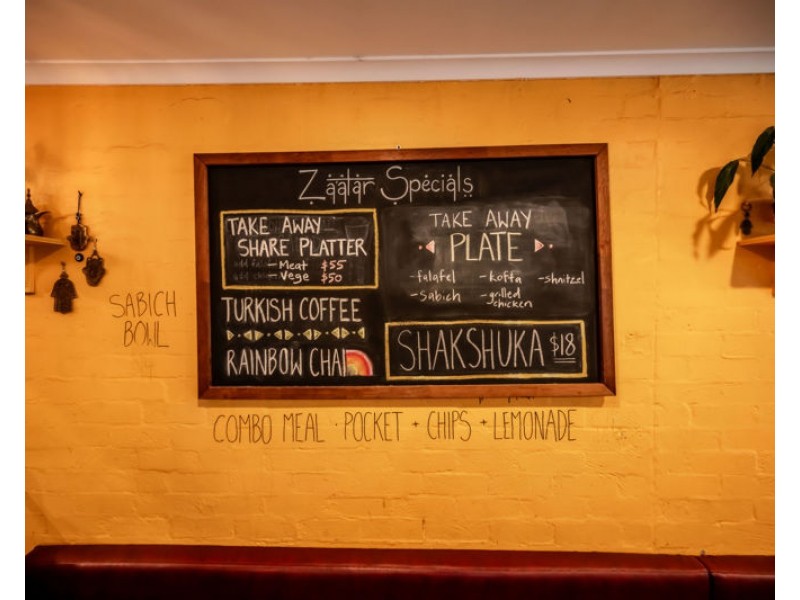 Zaatar Specials
TAKE AWAY
SHARE PLATTER
- Meat $55
- Vege $50
TURKISH COFFEE
RAINBOW CHAI
TAKE AWAY
PLATE
- falafel - kofta - shnitzel
- sabich - grilled chicken
SHAKSHUKA $18
SABICH
BOWL
COMBO MEAL · POCKET + CHIPS + LEMONADE